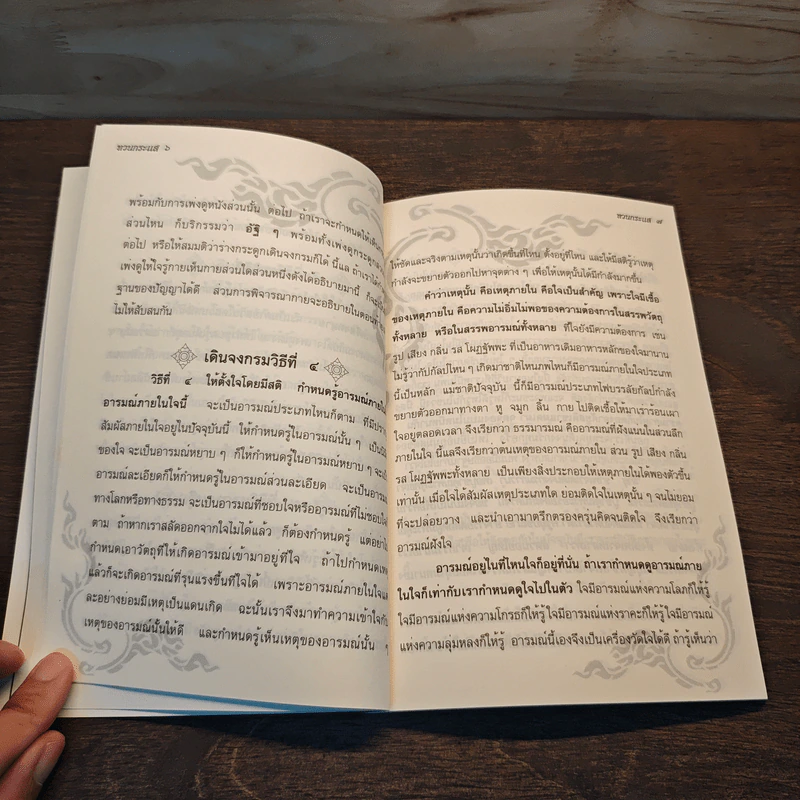 ทวนกระแส ๖
พร้อมกับการเพ่งดูหนังส่วนนั้น ต่อไป ถ้าเราจะกำหนดให้เดิน
ส่วนไหน ก็บริกรรมว่า อัฐิ ๆ พร้อมทั้งเพ่งดูกระดูก
ต่อไป หรือให้สมมติว่าร่างกระดูกเดินจงกรมก็ได้ นี้แล ถ้าเราได้
เพ่งดูให้ใจรู้กายเห็นกายส่วนใดส่วนหนึ่งดังได้อธิบายมานี้ ก็จะ
ฐานของปัญญาได้ดี ส่วนการพิจารณากายจะอธิบายในตอนที่
ไม่ให้สับสนกัน
เดินจงกรมวิธีที่ ๔
วิธีที่ ๔ ให้ตั้งใจโดยมีสติ กำหนดรู้อารมณ์ภายใน
อารมณ์ภายในใจนี้ จะเป็นอารมณ์ประเภทไหนก็ตาม ที่มี
สัมผัสภายในใจอยู่ในปัจจุบันนี้ ให้กำหนดรู้ในอารมณ์นั้น ๆ เป็น
ของใจ จะเป็นอารมณ์หยาบ ๆ ก็ให้กำหนดรู้ในอารมณ์หยาบ ๆ จะ
อารมณ์ละเอียดก็ให้กำหนดรู้ในอารมณ์ส่วนละเอียด จะเป็นอารมณ์
ทางโลกหรือทางธรรม จะเป็นอารมณ์ที่ชอบใจหรืออารมณ์ที่ไม่ชอบใจ
ตาม ถ้าหากเราสลัดออกจากใจไม่ได้แล้ว ก็ต้องกำหนดรู้ แต่อย่า
กำหนดเอาวัตถุที่ให้เกิดอารมณ์เข้ามาอยู่ที่ใจ ถ้าไปกำหนด
แล้วก็จะเกิดอารมณ์ที่รุนแรงขึ้นที่ใจได้ เพราะอารมณ์ภายในใจ
ละอย่างย่อมมีเหตุเป็นแดนเกิด ฉะนั้นเราจึงมาทำความเข้าใจกับ
เหตุของอารมณ์นั้นให้ดี และกำหนดรู้เห็นเหตุของอารมณ์นั้น ๆ
ทวนกระแส ๗
ให้ชัดและจริงตามเหตุนั้นว่าเกิดขึ้นที่ไหน ตั้งอยู่ที่ไหน และให้มีสติรู้ว่าเหตุ
กำลังจะขยายตัวออกไปหาจุดต่าง ๆ เพื่อให้เหตุนั้นได้มีกำลังมากขึ้น
คำว่าเหตุนั้น คือเหตุภายใน คือใจเป็นสำคัญ เพราะใจมีเชื้อ
ของเหตุภายใน คือความไม่อิ่มไม่พอของความต้องการในสรรพวัตถุ
ทั้งหลาย หรือในสรรพอารมณ์ทั้งหลาย ที่ใจยังมีความต้องการ เช่น
รูป เสียง กลิ่น รส โผฏฐัพพะ ที่เป็นอาหารเดิมอาหารหลักของใจมานาน
ไม่รู้ว่ากี่กัลป์ไหน ๆ เกิดมาชาติไหนภพไหนก็มีอารมณ์ภายในใจประเภท
นี้เป็นหลัก แม้ชาติปัจจุบัน นี้ก็มีอารมณ์ประเภทไฟบรรลัยกัลป์กำลัง
ขยายตัวออกมาทางตา หู จมูก ลิ้น กาย ไปติดเชื้อให้มาเร้าร้อนเผา
ใจอยู่ตลอดเวลา จึงเรียกว่า ธรรมารมณ์ คืออารมณ์ที่ฝังแน่นในส่วนลึก
ภายในใจ นี้แลจึงเรียกว่าต้นเหตุของอารมณ์ภายใน ส่วน รูป เสียง กลิ่น
รส โผฏฐัพพะทั้งหลาย เป็นเพียงสิ่งประกอบให้เหตุภายในได้พองตัวขึ้น
เท่านั้น เมื่อใจได้สัมผัสเหตุประเภทใด ย่อมติดใจในเหตุนั้น ๆ จนไม่ยอม
ที่จะปล่อยวาง และนำเอามาตรึกตรองครุ่นคิดจนติดใจ จึงเรียกว่า
อารมณ์ฝังใจ
อารมณ์อยู่ในที่ไหนใจก็อยู่ที่นั่น ถ้าเรากำหนดดูอารมณ์ภาย
ในใจก็เท่ากับเรากำหนดดูใจไปในตัว ใจมีอารมณ์แห่งความโลภก็ให้รู้
ใจมีอารมณ์แห่งความโกรธก็ให้รู้ ใจมีอารมณ์แห่งราคะก็ให้รู้ ใจมีอารมณ์
แห่งความลุ่มหลงก็ให้รู้ อารมณ์นี้เองจึงเป็นเครื่องวัดใจได้ดี ถ้ารู้เห็นว่า